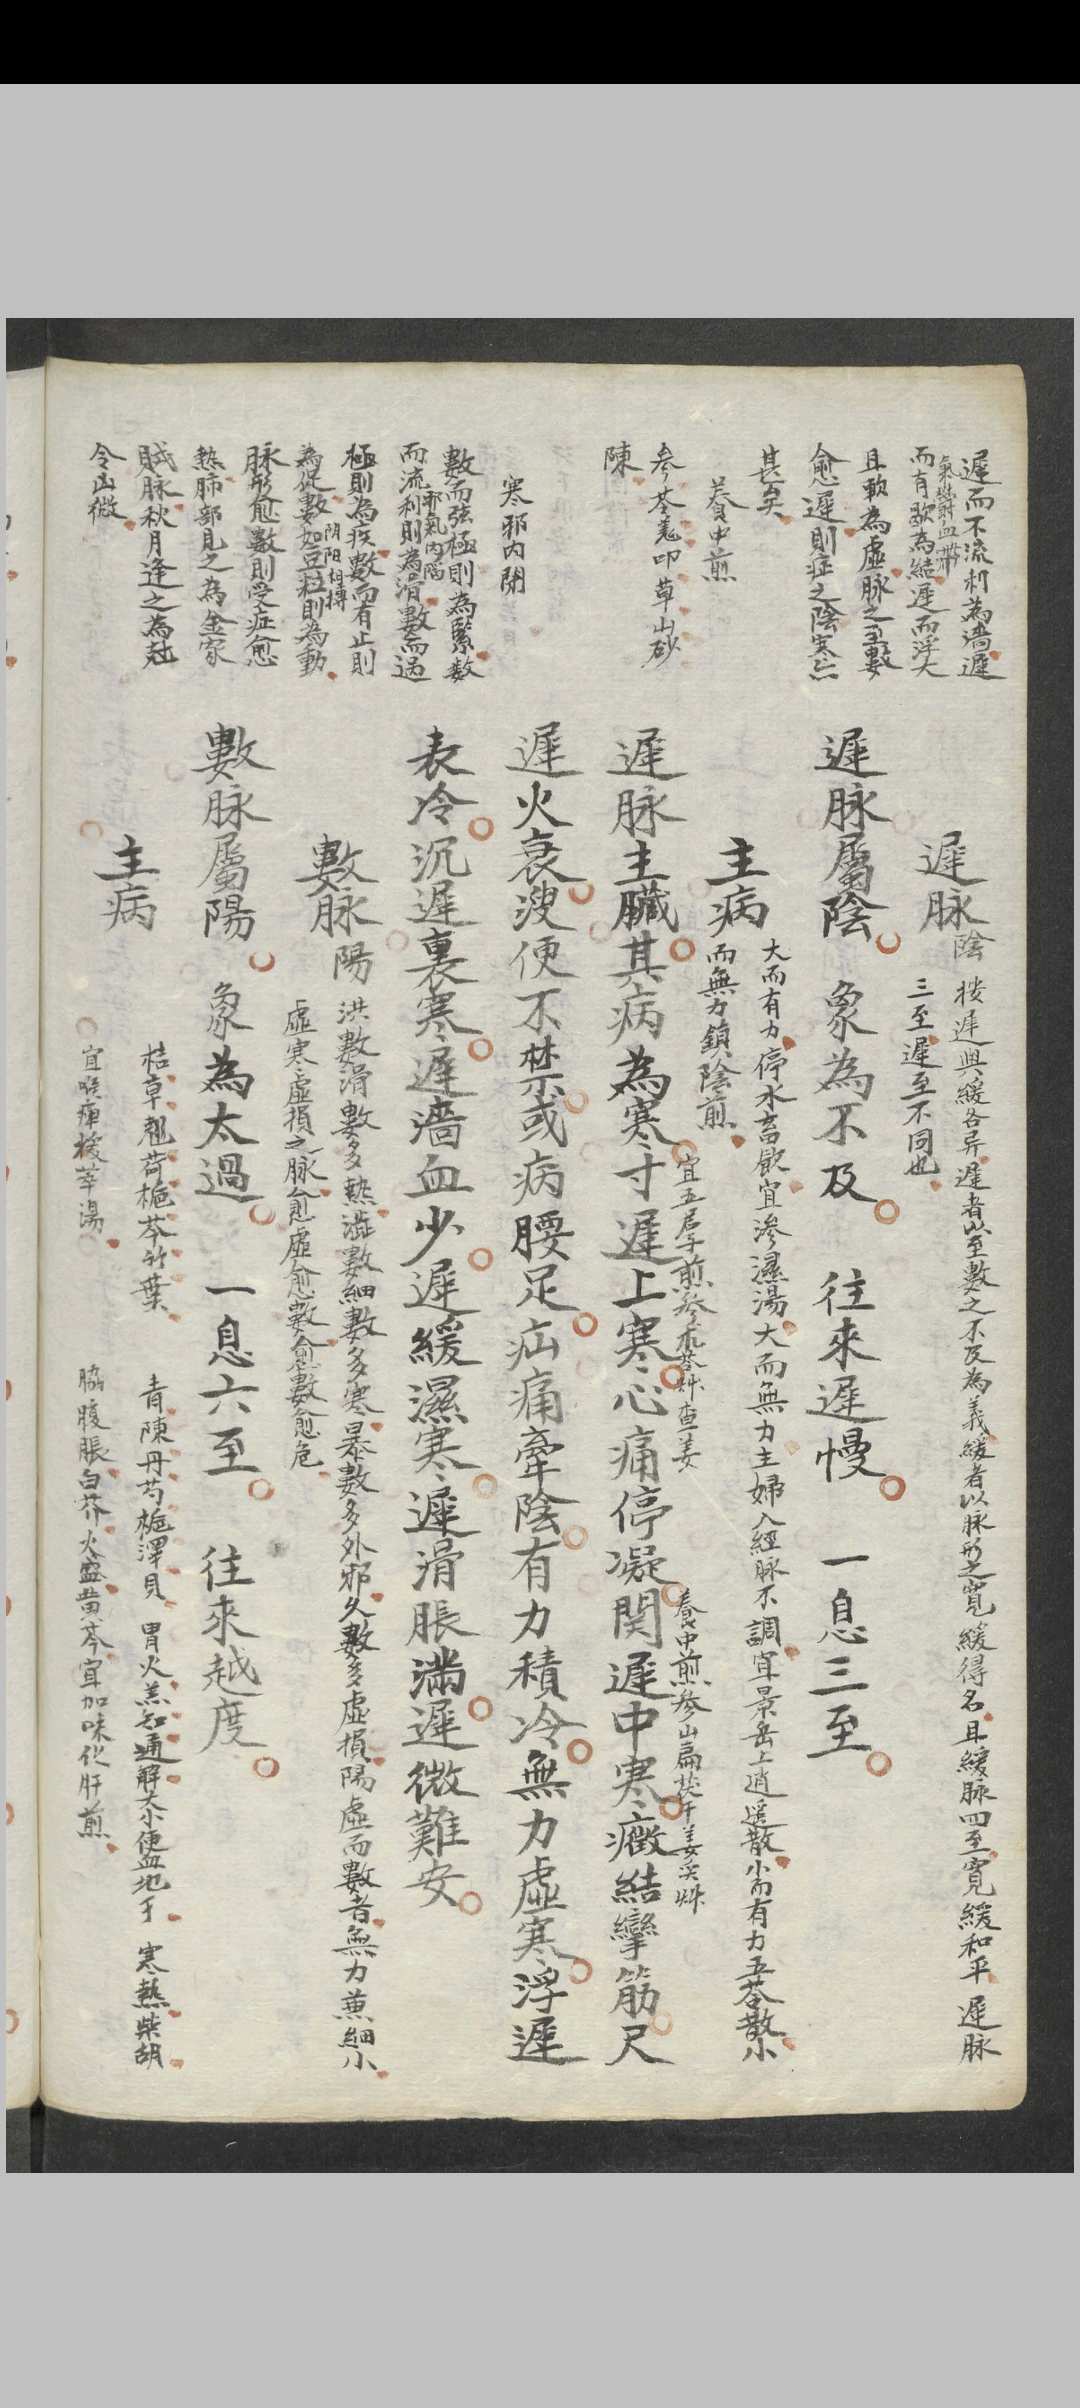 遲而不流利為濇遲
氣鬱血滯
而有歇為結遲而浮大
且軟為虛脉之至數
愈遲則症之陰寒亦
甚矣
養中煎
參苓羌叩草山砂
陳
寒邪內閉
數而弦極則為緊数
邪氣內陷
而流利則為滑數而過
極則為疾數而有止則
阴阳相搏
為促數如豆粒則為動
脉形愈數則受症愈
熱肺部見之為金家
賊脉秋月逢之為尅
令凶微
遲脉陰
按遲與緩各异遲者以至數之不及為義緩者以脉形之寬緩得名且緩脉四至寬緩和平遲脉
三至遲至不同也
遲脉屬陰 象為不及 往來遲慢 一息三至
主病
大而有力停水畜飲宜滲濕湯大而無力主婦人經脉不調宜景岳上逍遥散小而有力五苓散小
而無力鎮陰煎
宜五君子煎參朮苓艸查姜
養中煎參山扁茯干姜炙艸
遲脉主臟其病為寒寸遲上寒心痛停凝関遲中寒癥結攣筋尺
遲火衰溲便不禁或病腰足疝痛牽陰有力積冷無力虛寒浮遲
表冷沉遲裏寒遲濇血少遲緩濕寒遲滑脹滿遲微難安
數脉陽
洪數滑數多熱澁數細數多寒暴數多外邪久數多虛損陽虛而數者無力兼細小
虛寒虛損之脉愈虛愈數愈數愈危
數脉屬陽 象為太過 一息六至 往來越度
主病
桔草翹荷梔芩竹葉 青陳丹芍梔澤貝 胃火羔知通解大小便盅地于 寒熱柴胡
宜喉痺按萃湯 脇腹脹白芥火盛黄芩宜加味化肝煎